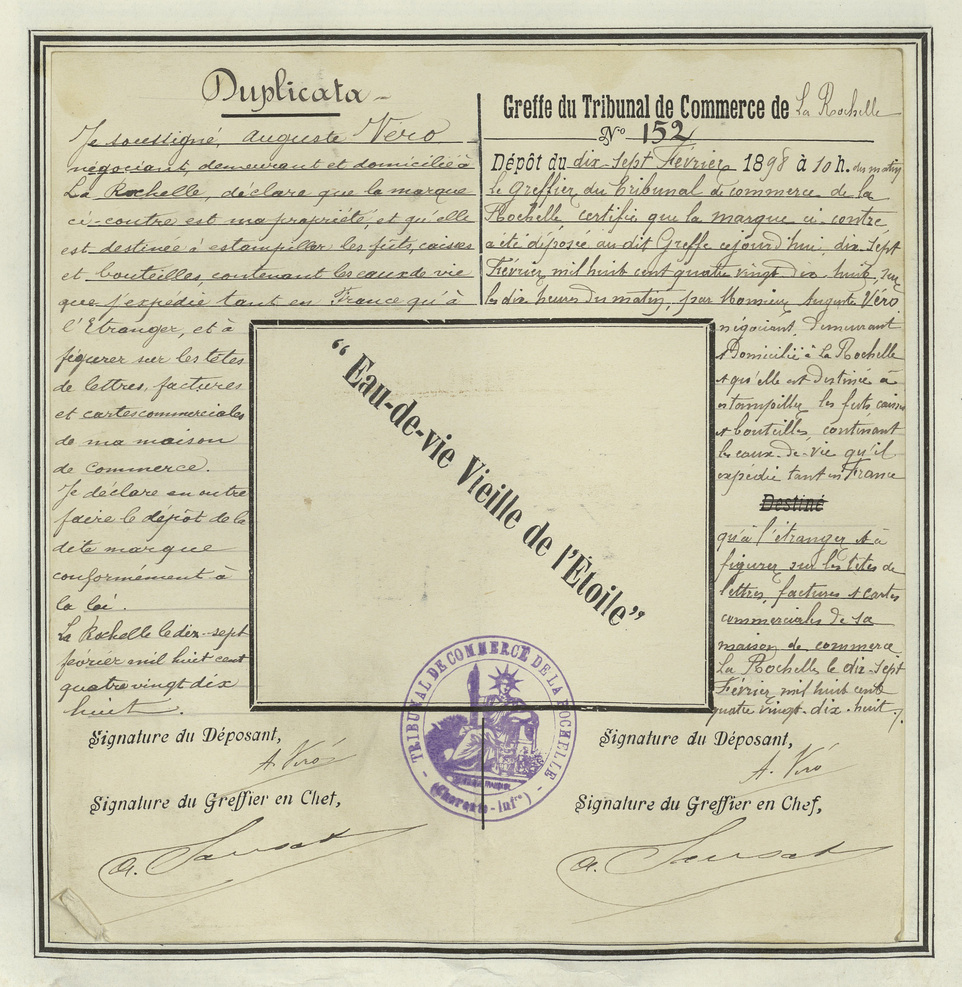 Duplicata -
Je soussigné, Auguste Véro
négociant, demeurant et domicilié à
La Rochelle, déclare que la marque
ci-contre est ma propriété, et qu'elle
est destinée à estampiller les fûts, caisses
et bouteilles contenant les eaux de vie
que j'expédie tant en France qu'à
l'Etranger, et à
figurer sur les têtes
de lettres, factures
et cartes commerciales
de ma maison
de commerce.
Je déclare en outre
faire le dépôt de la
dite marque
conformément à
la loi.
La Rochelle le dix-sept
février mil huit cent
quatre vingt dix
huit.
Signature du Déposant,
A. Véro
Signature du Greffier en Chef,
Greffe du Tribunal de Commerce de La Rochelle
N° 152
Dépôt du dix-sept Février 1898 à 10 h. du matin
Le Greffier du Tribunal de commerce de la
Rochelle certifie que la marque ci-contre
a été déposée au dit Greffe cejourd'hui dix-sept
Février mil huit cent quatre vingt dix huit, sur
les dix heures du matin, par Monsieur Auguste Véro
négociant, Demeurant
et Domicilié à la Rochelle
et qu'elle est Destinée à
estampiller les futs caisses
et bouteilles, contenant
les eaux-de-vie qu'il
expédie tant en France
Destiné
qu'à l'étranger et à
figurer sur les têtes de
lettres, factures et cartes
commerciales de sa
maison de commerce
La Rochelle le dix-sept
Février mil huit cent
quatre vingt-dix-huit.
Signature du Déposant,
A. Véro
Signature du Greffier en Chef,
“Eau-de-vie Vieille de l'Étoile”
TRIBUNAL DE COMMERCE DE LA ROCHELLE
(Charente-Infre)